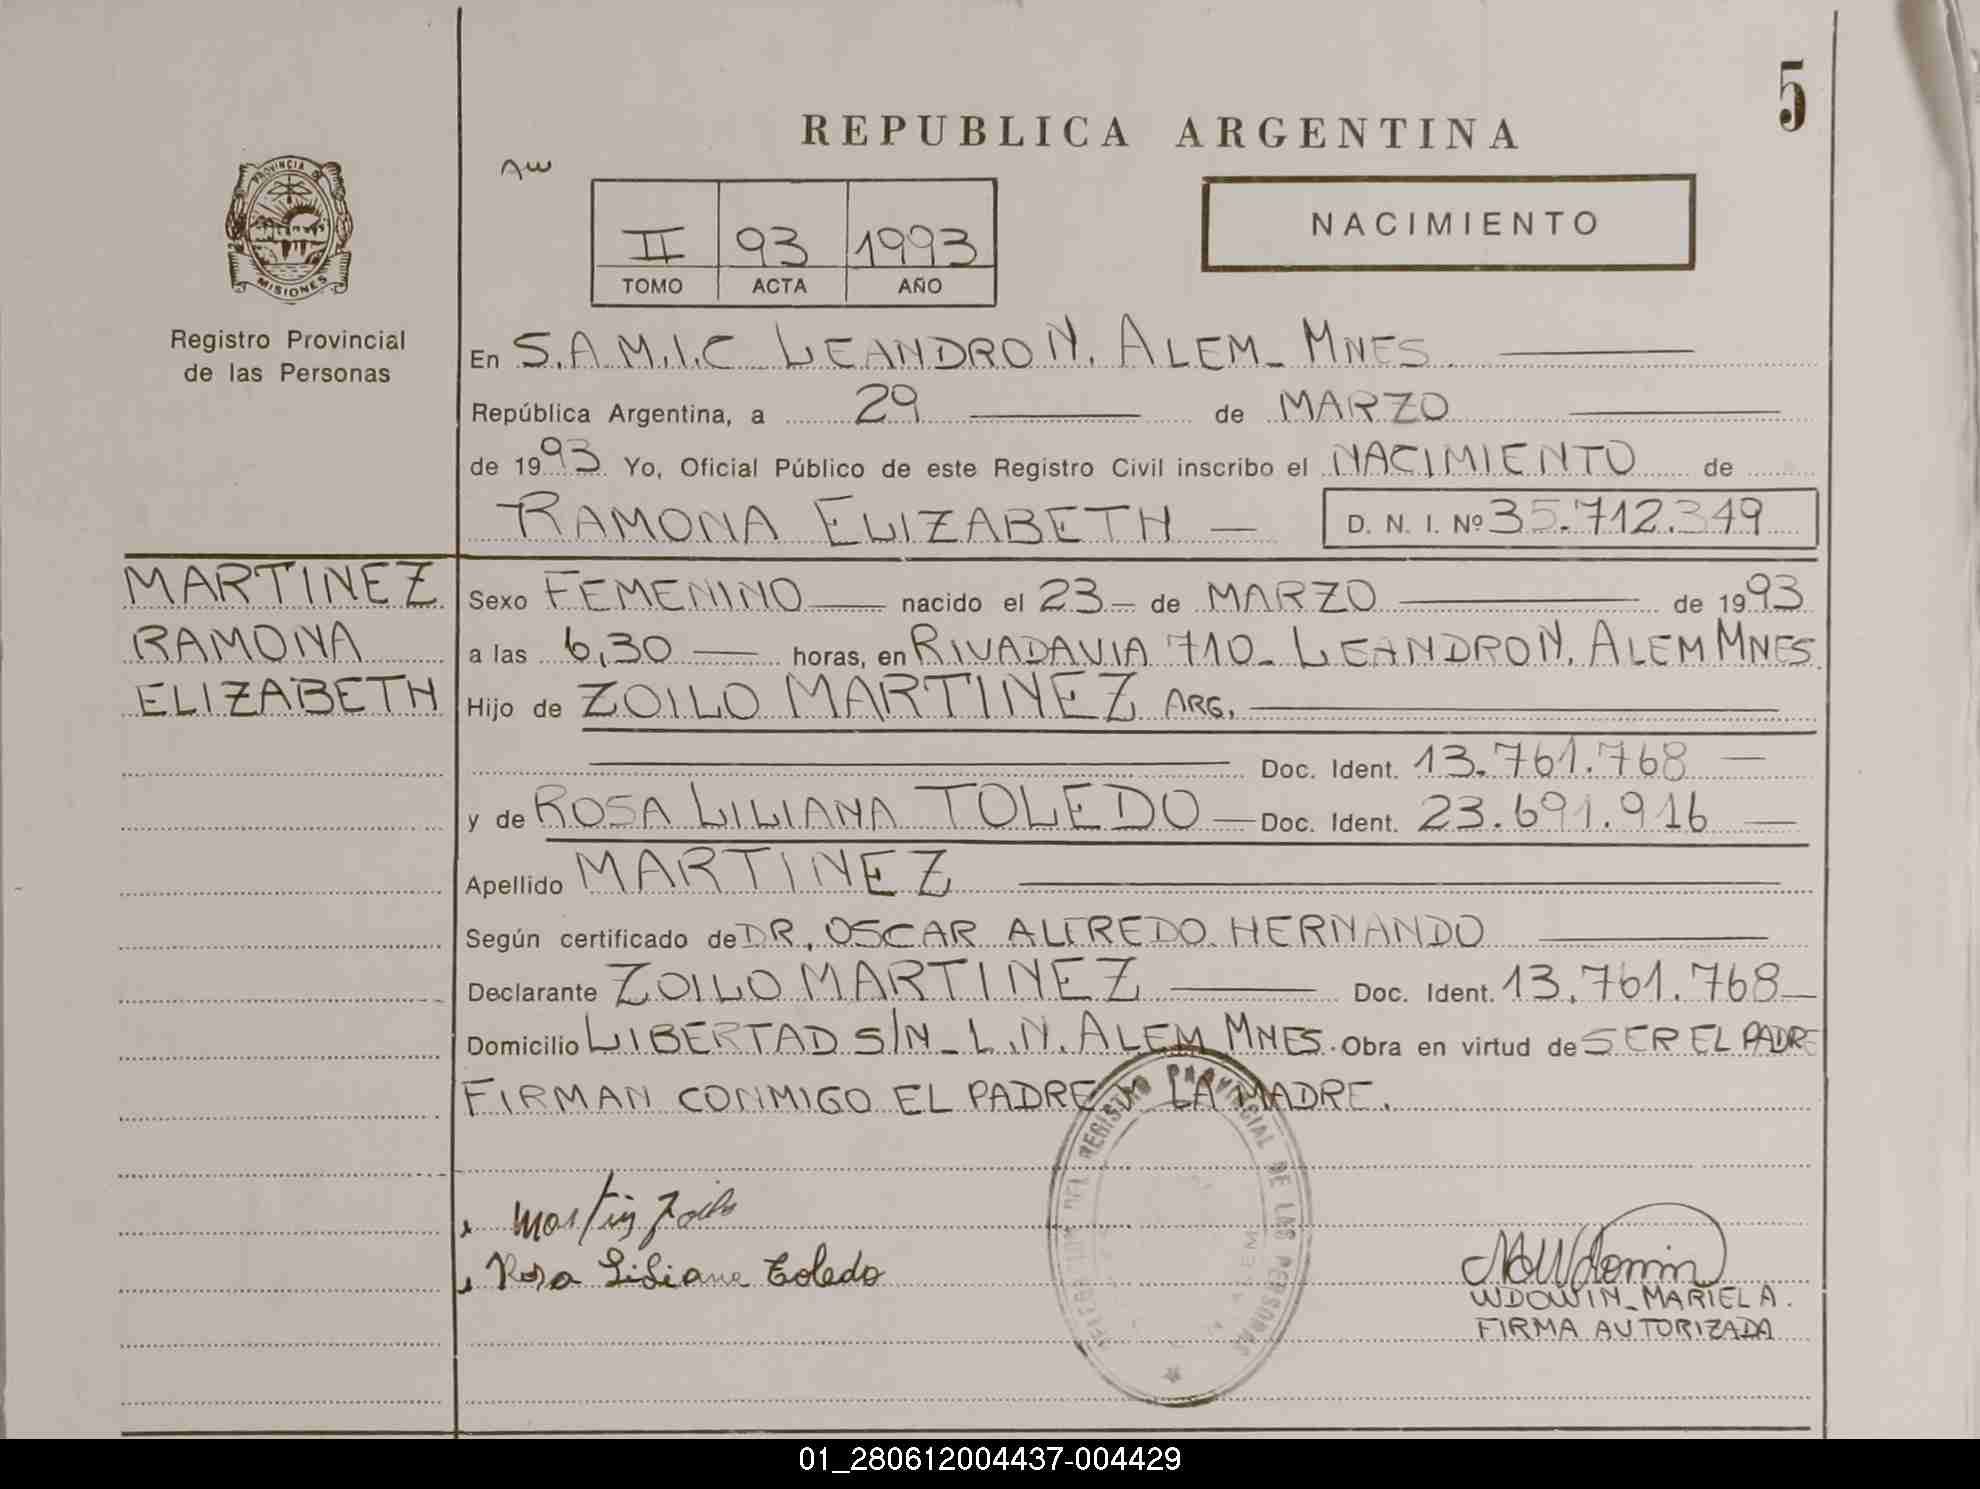 5
REPUBLICA ARGENTINA
AW
PROVINCIA DE
MISIONES
Registro Provincial
de las Personas
II 93 1993
TOMO ACTA AÑO
NACIMIENTO
En S.A.M.I.C LEANDRO N. ALEM - MNES
República Argentina, a 29 de MARZO
de 1993 Yo, Oficial Público de este Registro Civil inscribo el NACIMIENTO de
RAMONA ELIZABETH — D. N. I. Nº 35.712.349
MARTINEZ
RAMONA
ELIZABETH
Sexo FEMENINO nacido el 23 de MARZO de 1993
a las 6,30 horas, en RIVADAVIA 710 - LEANDRO N. ALEM MNES.
Hijo de ZOILO MARTINEZ ARG.
Doc. Ident. 13.761.768 —
y de ROSA LILIANA TOLEDO — Doc. Ident. 23.691.916 —
Apellido MARTINEZ
Según certificado de DR. OSCAR ALFREDO HERNANDO
Declarante ZOILO MARTINEZ Doc. Ident. 13.761.768
Domicilio LIBERTAD S/N - L.N. ALEM MNES. Obra en virtud de SER EL PADRE
FIRMAN CONMIGO EL PADRE Y LA MADRE.
DELEGACION DEL REGISTRO PROVINCIAL DE LAS PERSONAS
Rosa Liliana Toledo
WDOWIN - MARIEL A.
FIRMA AUTORIZADA
01_280612004437-004429